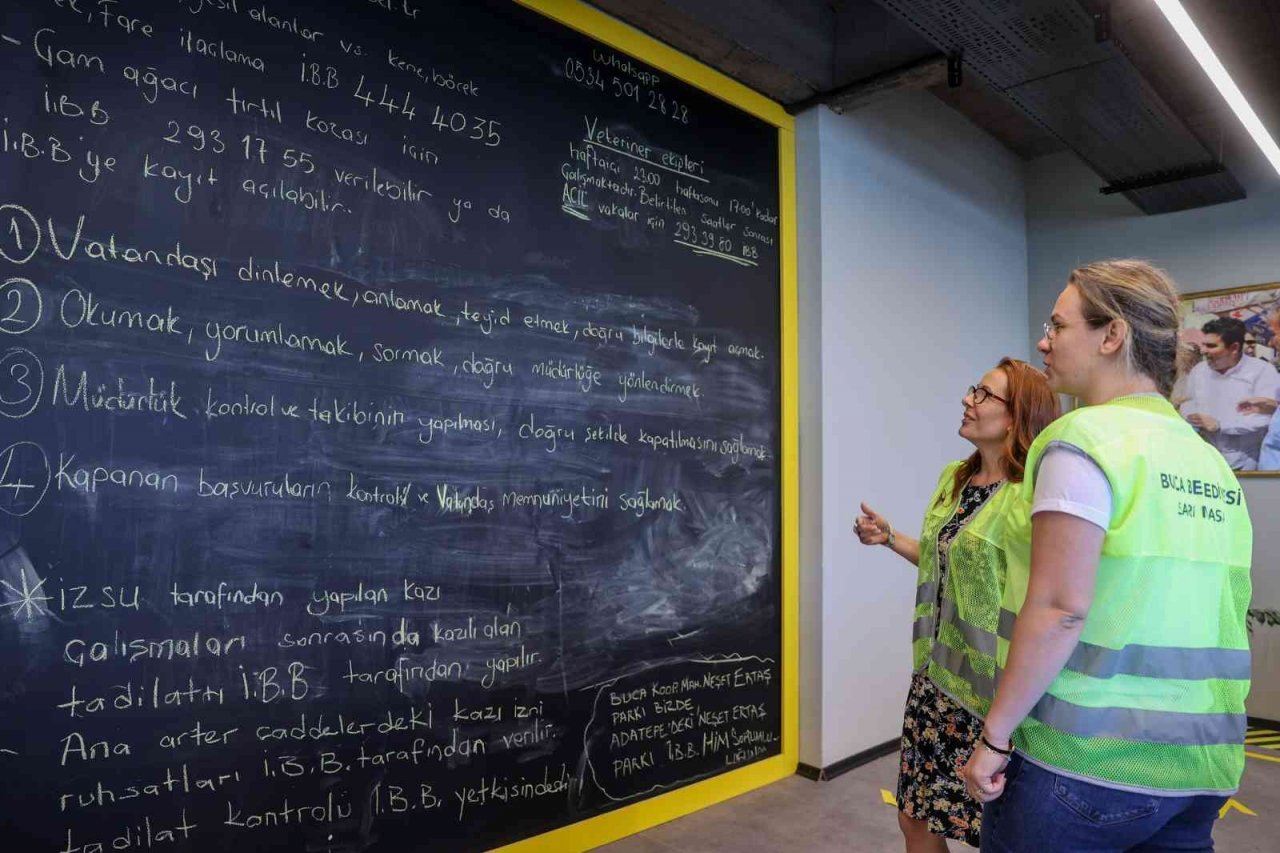 yeşil alanlar vs. kene, böcek
fare ilaçlama İ.B.B 444 40 35
- Çam ağacı tırtıl kozası için
İ.B.B 293 17 55 verilebilir ya da
İ.B.B'ye kayıt açılabilir..
1 Vatandaşı dinlemek, anlamak, teyid etmek, doğru bilgilerle kayıt açmak.
2 Okumak, yorumlamak, sormak, doğru müdürlüğe yönlendirmek.
3 Müdürlük kontrol ve takibinin yapılması, doğru şekilde kapatılmasını sağlamak.
4 Kapanan başvuruların kontrolü ve Vatandaş Memnuniyetini sağlamak.
* İZSU tarafından yapılan kazı
çalışmaları sonrasında kazılı alan
tadilatı İ.B.B tarafından yapılır.
- Ana arter caddelerdeki kazı izni
ruhsatları İ.B.B. tarafından verilir.
tadilat kontrolü İ.B.B. yetkisindedir
Whatsapp
0534 501 28 28
Veteriner ekipleri
haftaiçi 23.00 haftasonu 17.00'kadar
Çalışmaktadır. Belirtilen saatler sonrası
ACİL vakalar için 293 39 80 İBB
BUCA KOOP. MAH. NEŞET ERTAŞ
PARKI BİZDE
ADATEPE'DEKİ NEŞET ERTAŞ
PARKI İ.B.B. HİM SORUMLU-
LUĞUNDA